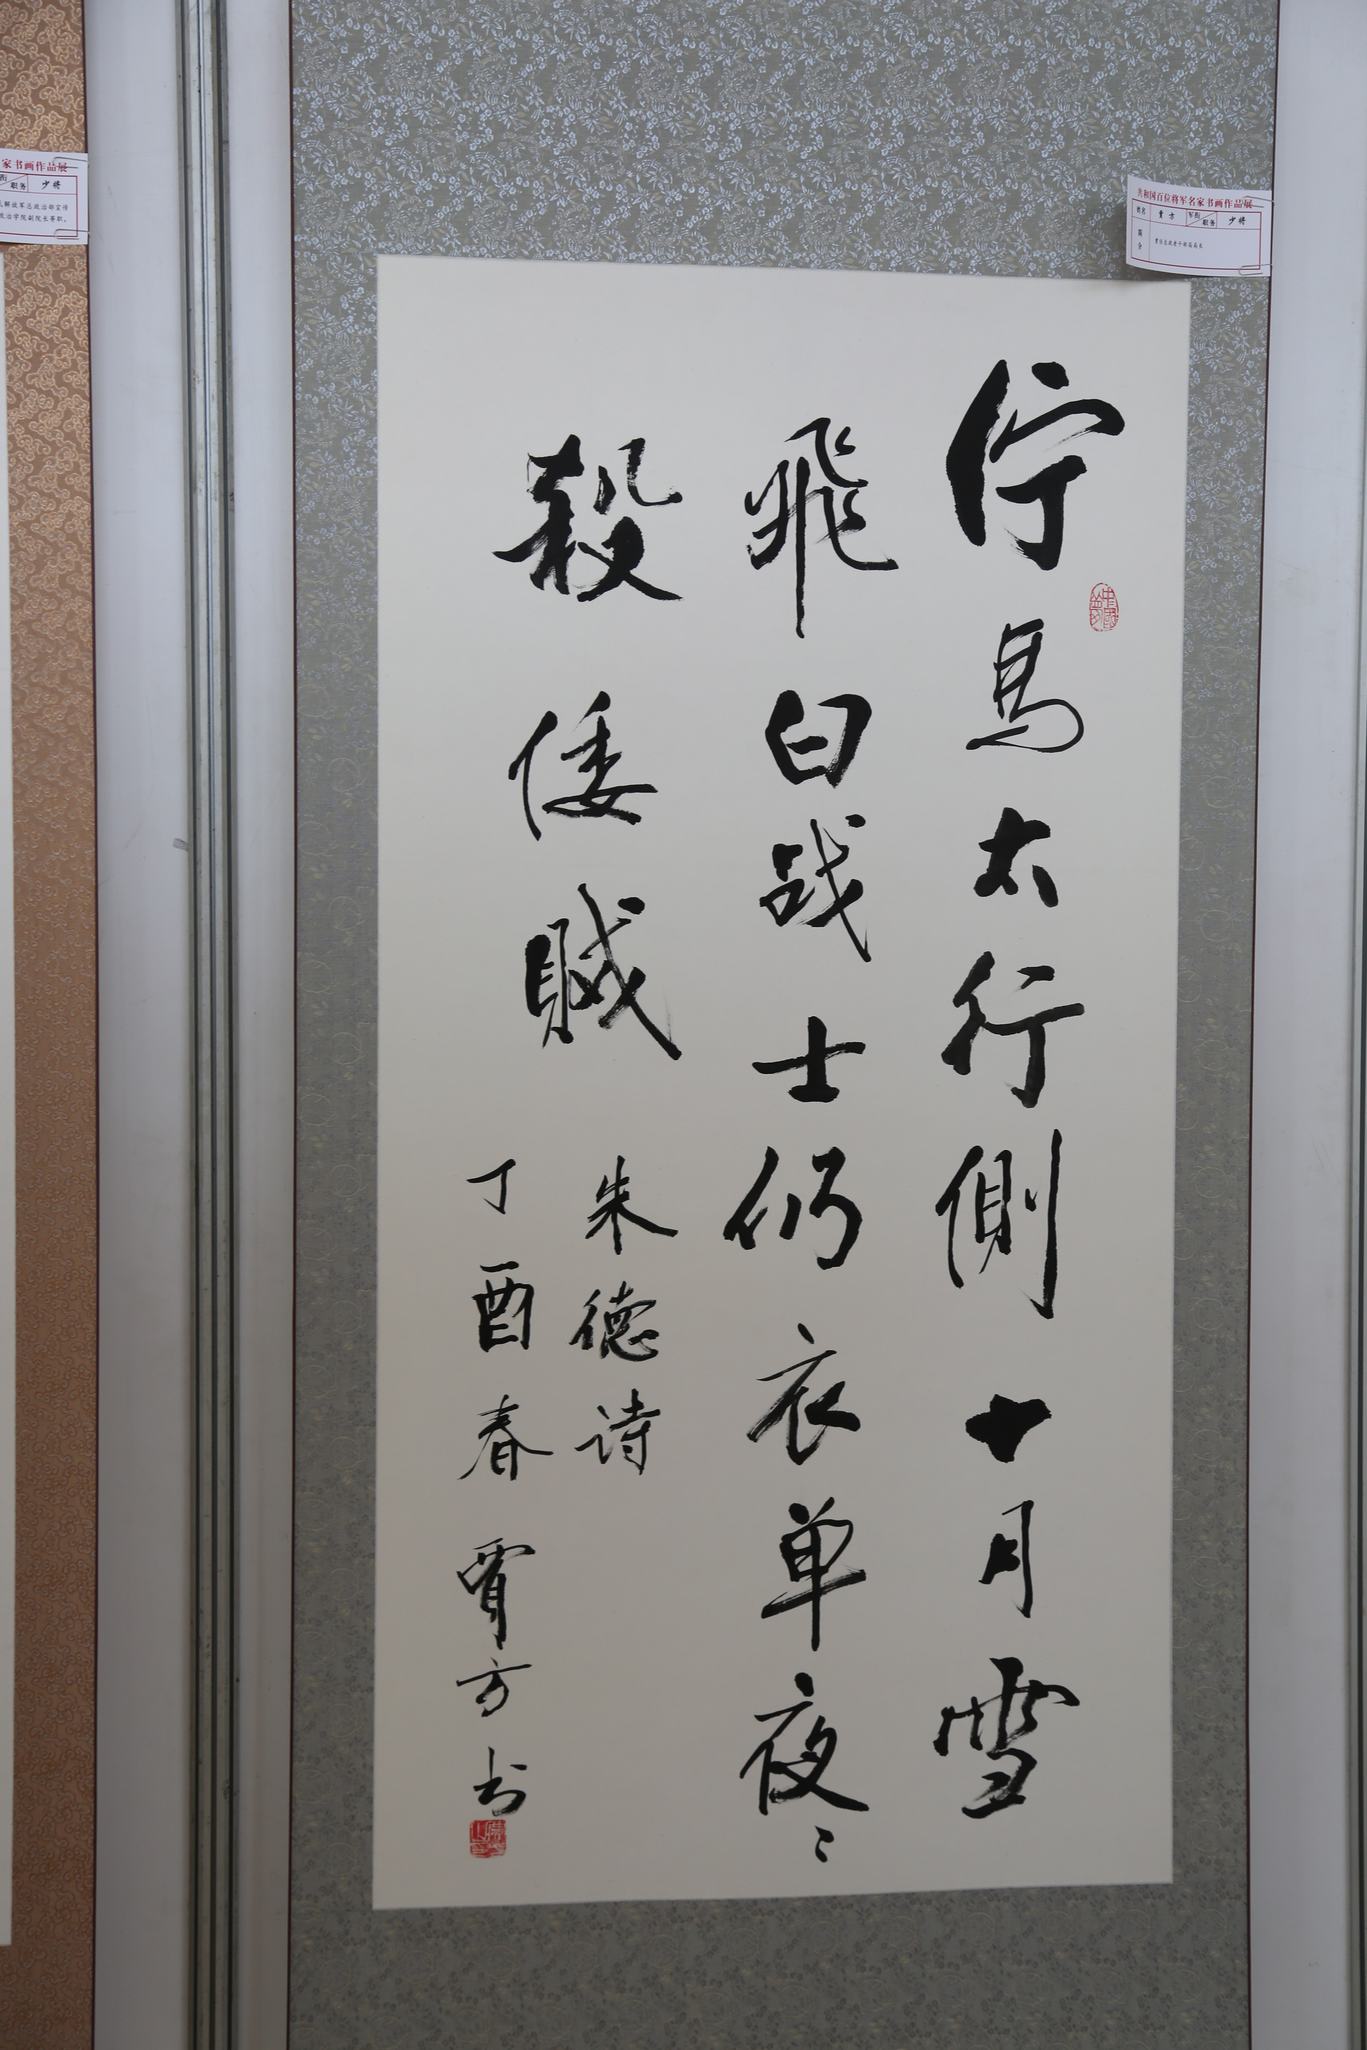 佇馬太行側十月雪
飛白战士仍衣单夜〻
殺倭贼
朱德诗
丁酉春賈方书
共和国百位将军名家书画作品展
姓名 賈方 军衔 职务 少将
简介 曾任总政老干部局局长
家书画作品展
衔 职务 少将
解放军总政治部宣传
政治学院副院长等职。